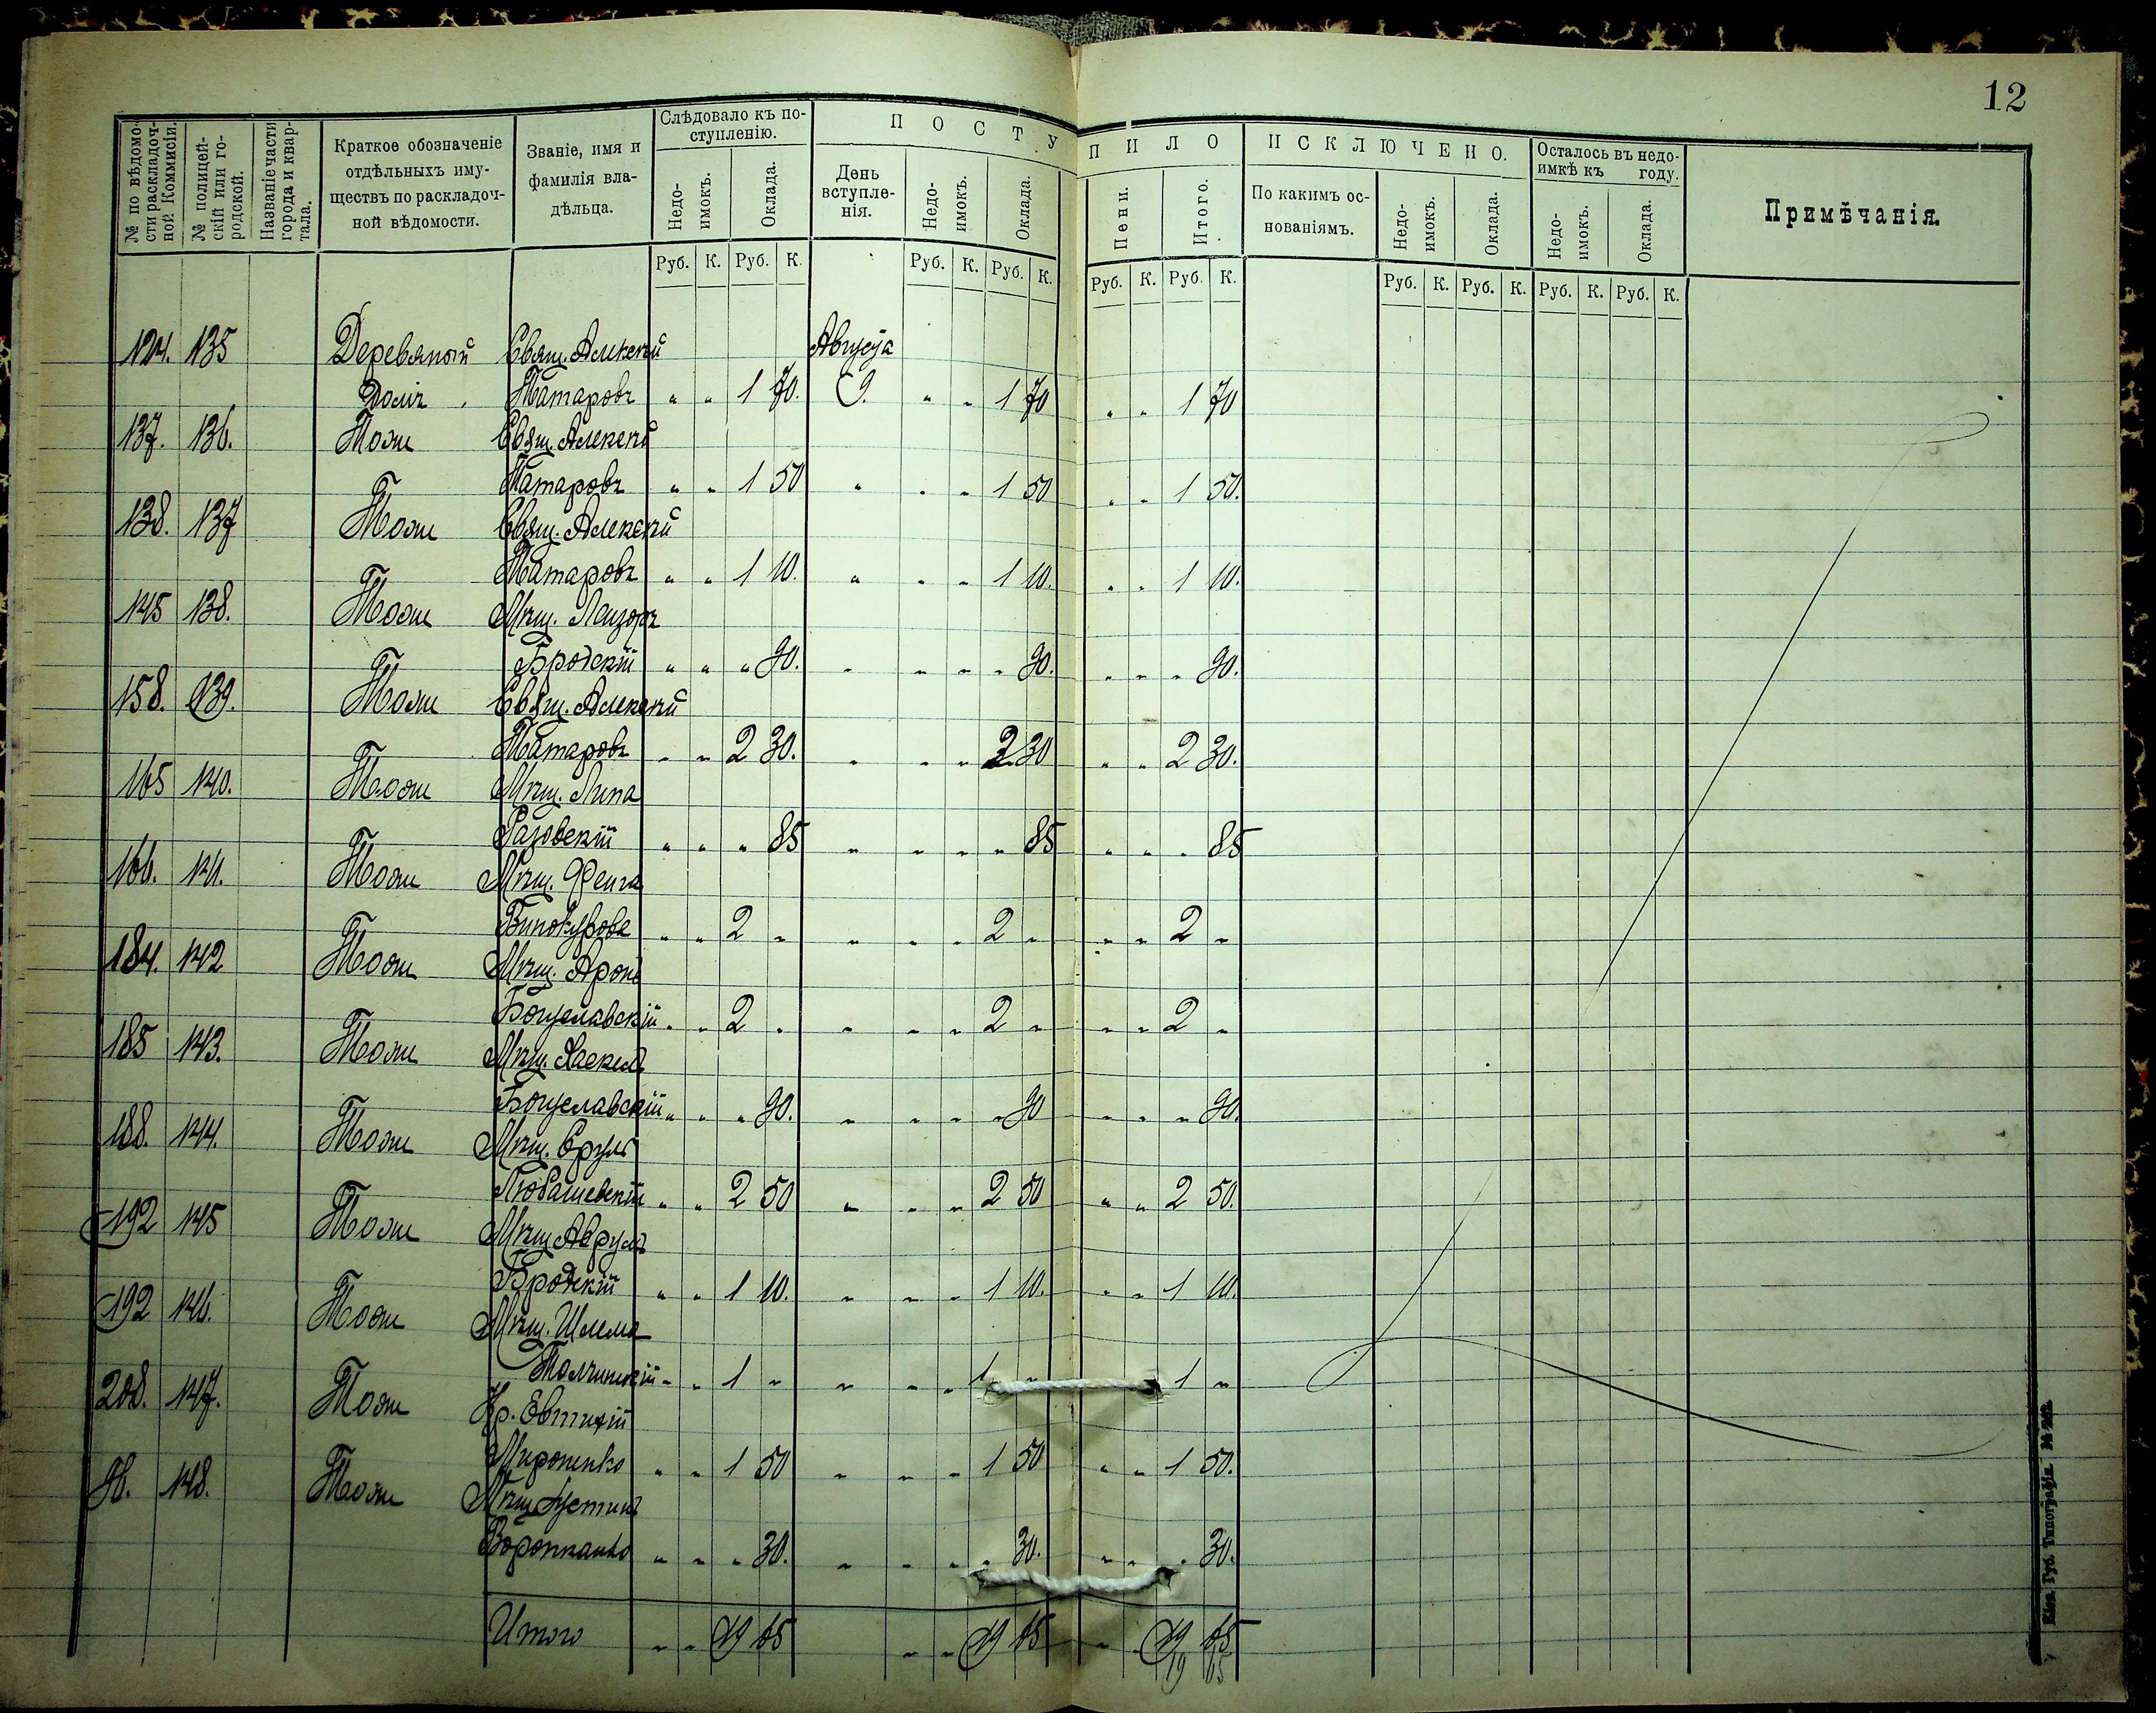 12
№ по вѣдомости раскладочной Коммисіи.
№ полицейскій или городской.
Названіе части города и квартала.
Краткое обозначеніе отдѣльныхъ имуществъ по раскладочной вѣдомости.
Званіе, имя и фамилія владѣльца.
Слѣдовало къ поступленію.
Недоимокъ. Оклада.
ПОСТУПИЛО
День вступленія. Недоимокъ. Оклада. Пени. Итого.
ИСКЛЮЧЕНО.
По какимъ основаніямъ. Недоимокъ. Оклада.
Осталось въ недоимкѣ къ году.
Недоимокъ. Оклада.
Примѣчанія.
Руб. К. Руб. К. Руб. К. Руб. К. Руб. К. Руб. К. Руб. К. Руб. К. Руб. К. Руб. К.
124. 135 Деревяный Свящ. Алексѣй Августа
Домъ Татаровъ " " 1 70. 9. " " 1 70 " " 1 70
137. 136. Тоже Свящ. Алексѣй
Татаровъ " " 1 50 " " " 1 50 " " 1 50.
138. 137 Тоже Свящ. Алексѣй
Татаровъ " " 1 10. " " " 1 10. " " 1 10.
145 138. Тоже Мѣщ. Лейзоръ
Бродскій " " " 90. " " " " 90. " " " 90.
158. 139. Тоже Свящ. Алексѣй
Татаровъ " " 2 30. " " " 2 30 " " 2 30.
165 140. Тоже Мѣщ. Липа
" " " 85 " " " " 85 " " " 85
166. 141. Тоже Мѣщ. Фейга
Винокурова " " 2 " " " " 2 " " " 2 "
184. 142 Тоже Мѣщ. Аронъ
Богуславскій " " 2 " " " " 2 " " " 2 "
185 143. Тоже Мѣщ. Хаскель
Богуславскій " " " 90. " " " " 90 " " " 90.
188. 144. Тоже Мѣщ. Сруль
Любашевскій " " 2 50 " " " 2 50 " " 2 50.
192 145 Тоже Мѣщ. Аврумъ
Бродскій " " 1 10. " " " 1 10. " " 1 10.
192 146. Тоже Мѣщ. Шлема
Толчинскій " " 1 " " " " 1 " 1 "
208. 147. Тоже Кр. Евтихій
Мироненко " " 1 50 " " " 1 50 " " 1 50.
148. Тоже Мѣщ. Устинъ
" " " 30. " " " " 30. " " " 30.
Итого " " 19 65 " " 19 65 " " 19 65
19 65
Кіев. Губ. Типографія